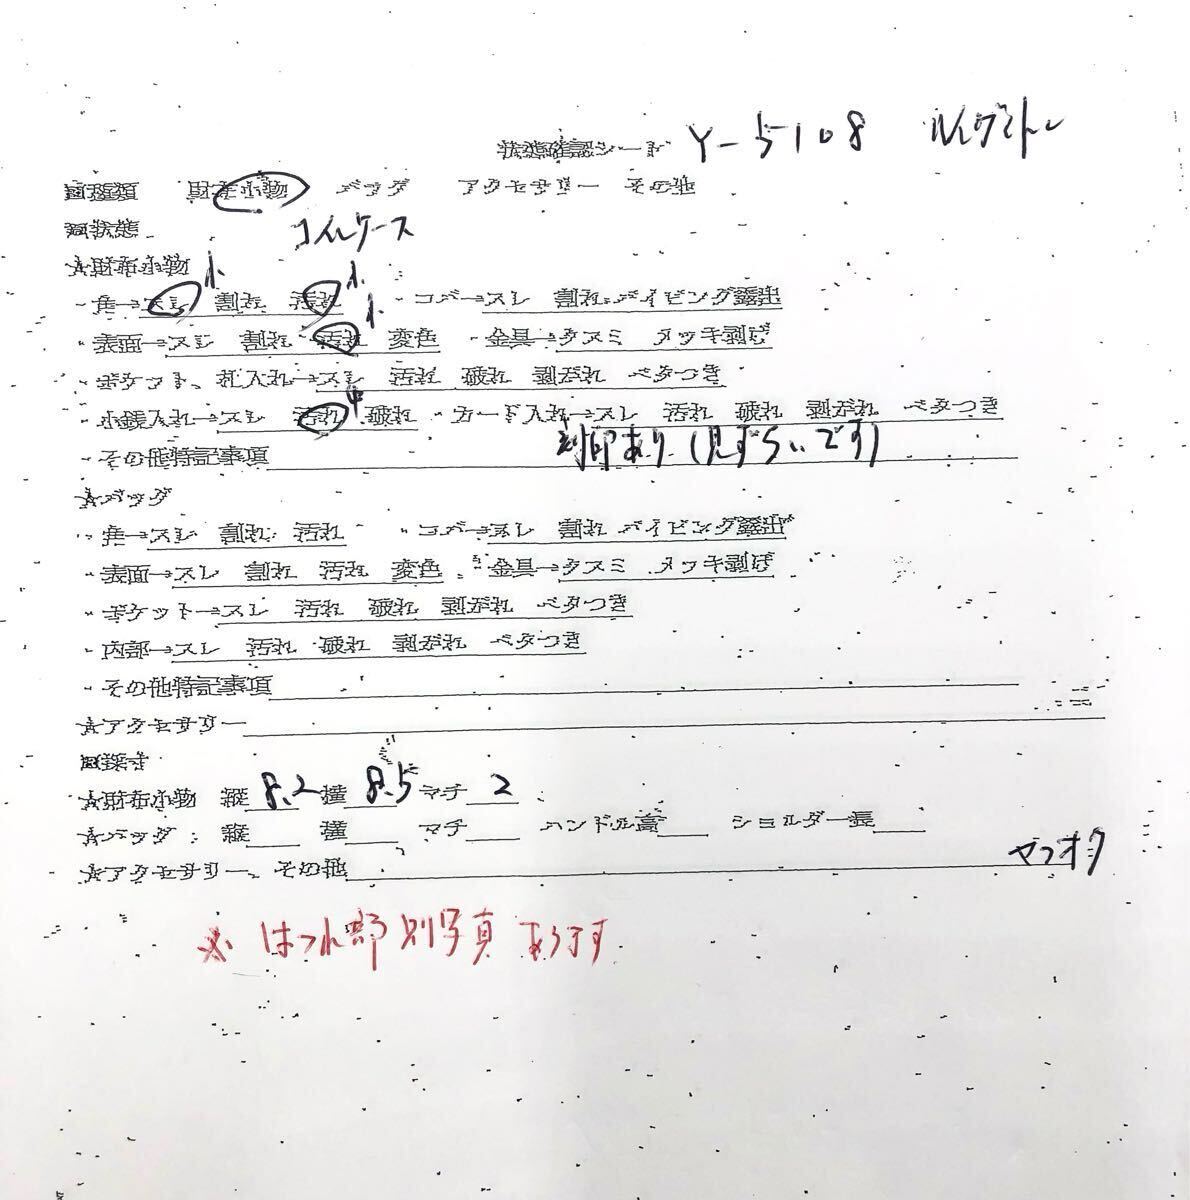 状態確認シート Y-5108 ルイヴィトン
□種類 財布小物 バッグ アクセサリー その他
□状態 コインケース
☆財布小物
小 小
・角→スレ 割れ 汚れ ・コバ→スレ 割れ パイピング露出
小
・表面→スレ 割れ 汚れ 変色 ・金具→クスミ メッキ剥げ
・ポケット、札入れ→スレ 汚れ 破れ 剥がれ ベタつき
中
・小銭入れ→スレ 汚れ 破れ ・カード入れ→スレ 汚れ 破れ 剥がれ ベタつき
・その他特記事項 刻印あり(見ずらいです)
☆バッグ
・角→スレ 割れ 汚れ ・コバ→スレ 割れ パイピング露出
・表面→スレ 割れ 汚れ 変色 ・金具→クスミ メッキ剥げ
・ポケット→スレ 汚れ 破れ 剥がれ ベタつき
・内部→スレ 汚れ 破れ 剥がれ ベタつき
・その他特記事項
☆アクセサリー
□採寸
☆財布小物 縦 8.2 横 8.5 マチ 2
☆バッグ:縦 横 マチ ハンドル高 ショルダー長
☆アクセサリー、その他 ヤフオク
※ ほつれ部 別写真 あります